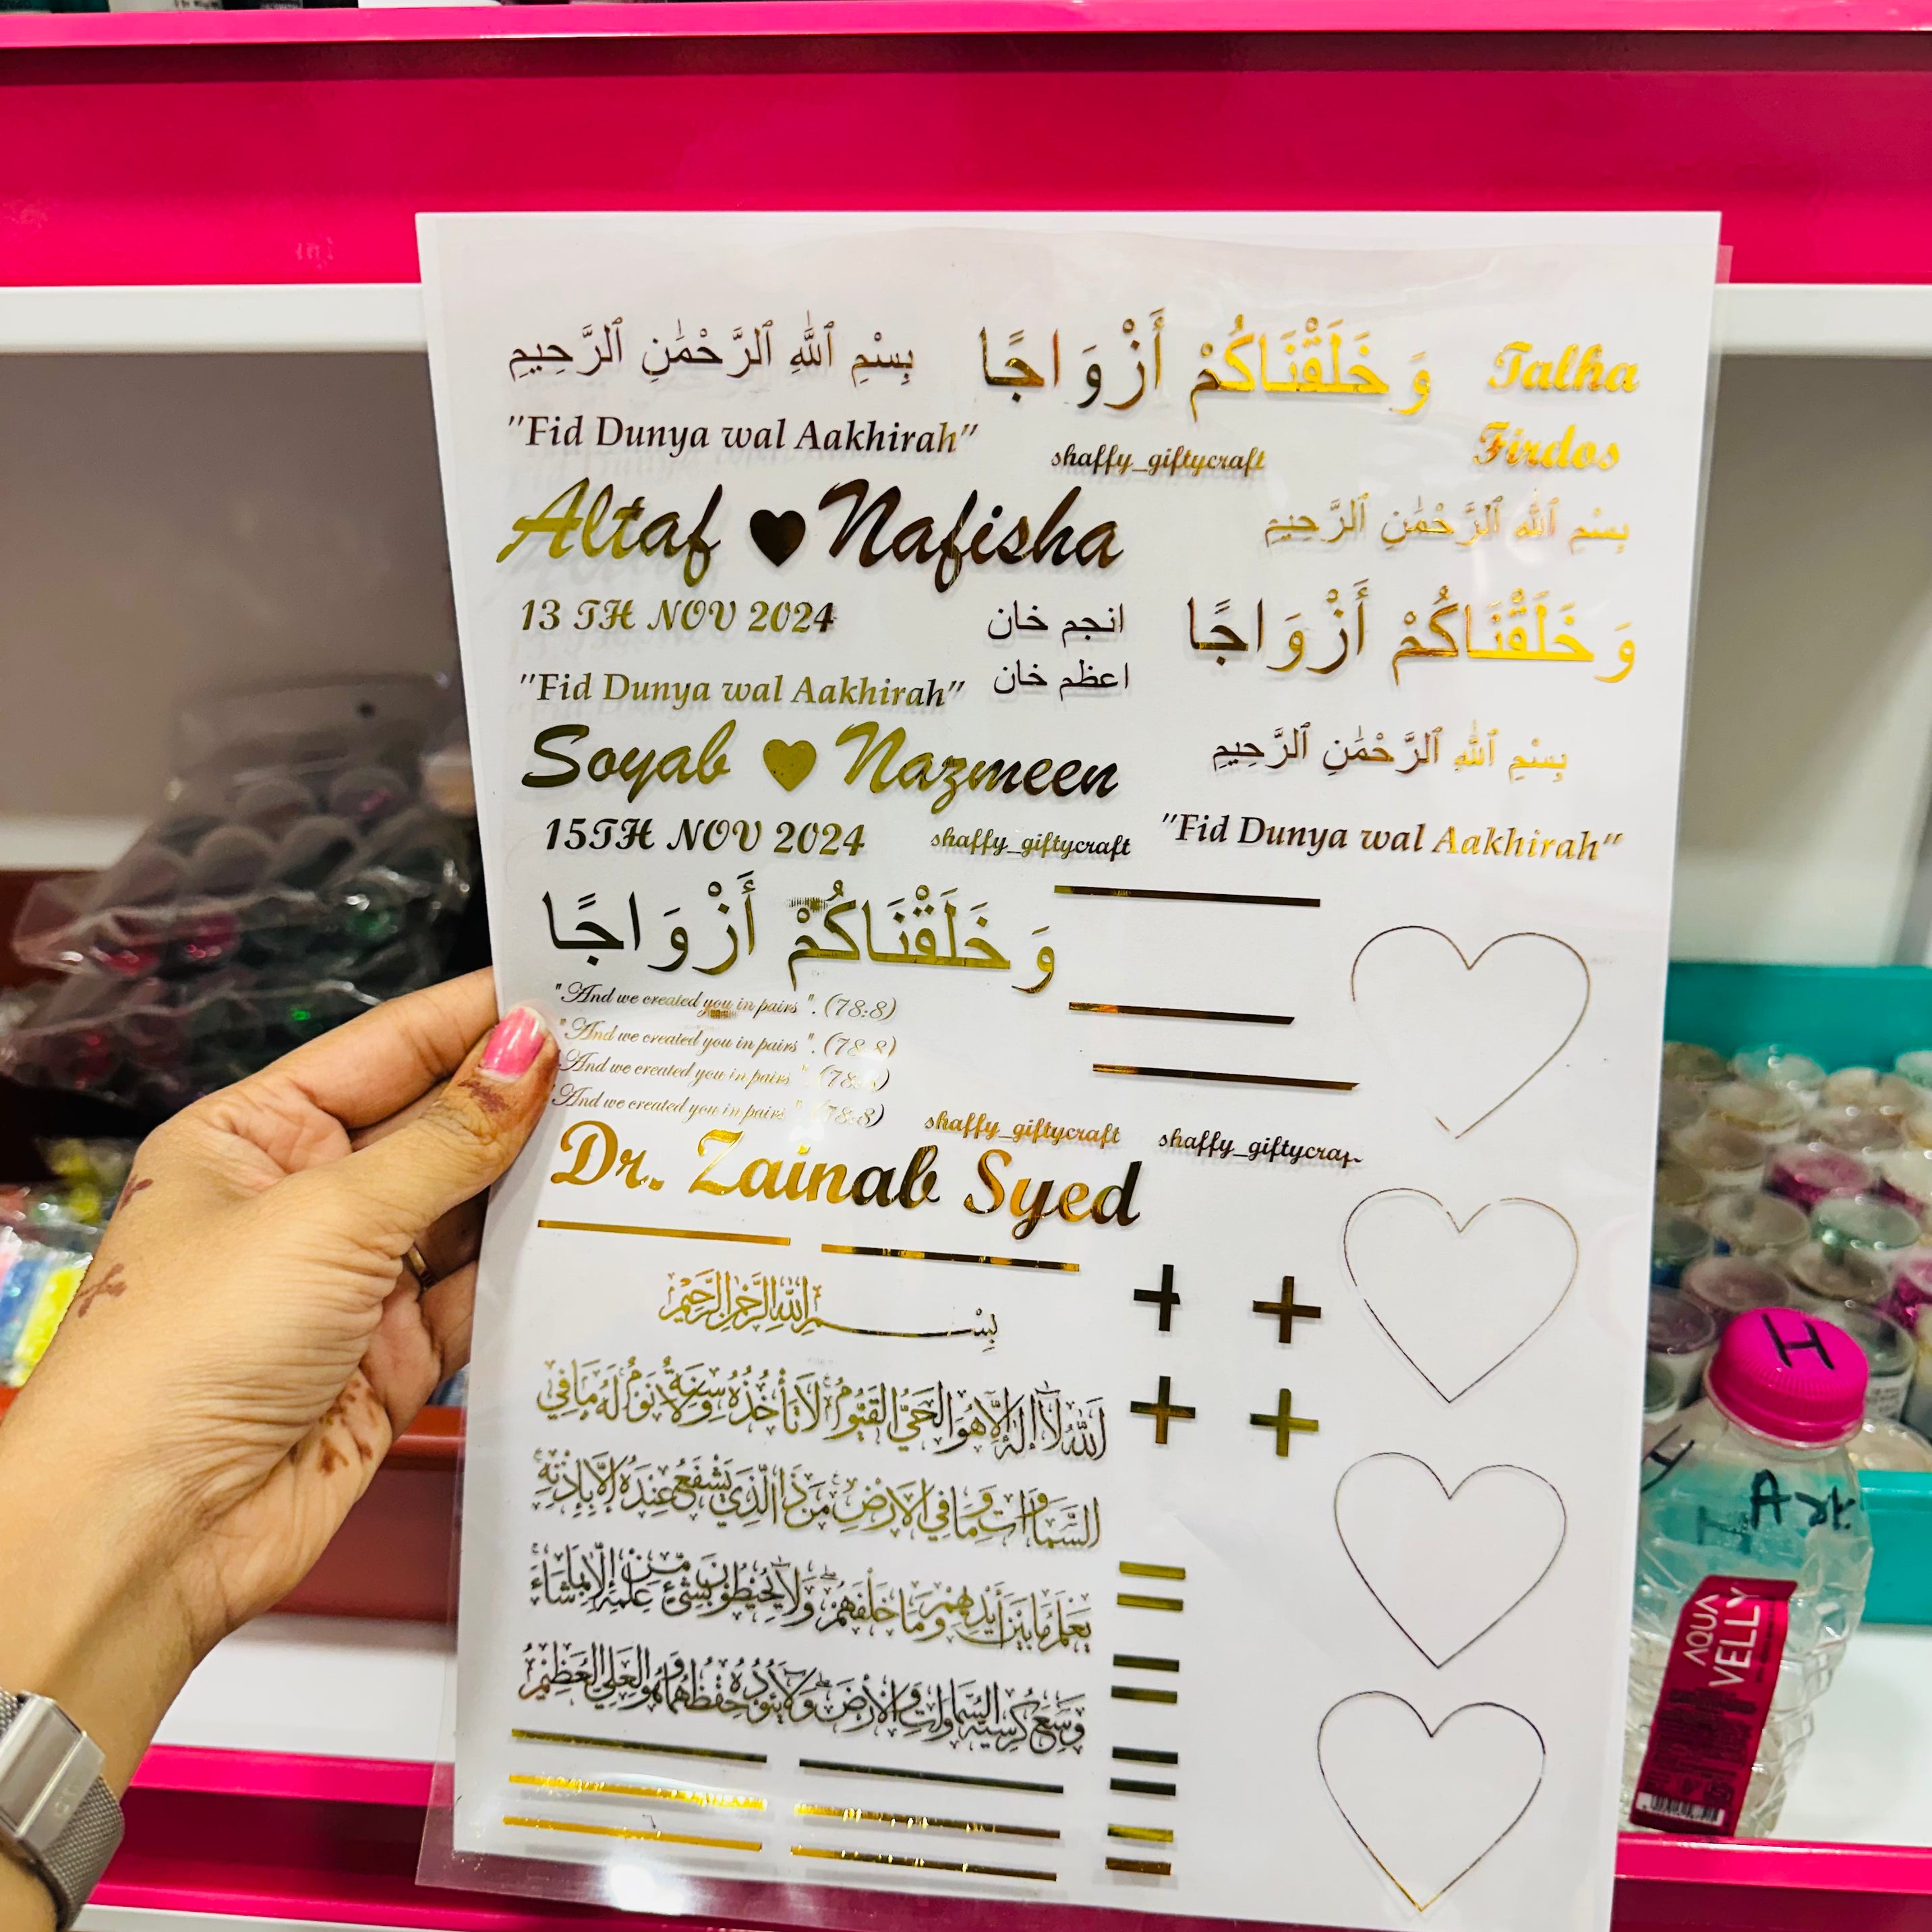 بِسْمِ ٱللَّٰهِ ٱلرَّحْمَٰنِ ٱلرَّحِيمِ
وَ خَلَقْنَاكُمْ أَزْوَاجًا
Talha
"Fid Dunya wal Aakhirah"
shaffy_giftycraft
Firdos
Altaf ♥ Nafisha
بِسْمِ ٱللَّٰهِ ٱلرَّحْمَٰنِ ٱلرَّحِيمِ
13 TH NOV 2024
انجم خان
وَ خَلَقْنَاكُمْ أَزْوَاجًا
"Fid Dunya wal Aakhirah"
اعظم خان
Soyab ♥ Nazmeen
بِسْمِ ٱللَّٰهِ ٱلرَّحْمَٰنِ ٱلرَّحِيمِ
15TH NOV 2024
shaffy_giftycraft
"Fid Dunya wal Aakhirah"
وَ خَلَقْنَاكُمْ أَزْوَاجًا
"And we created you in pairs". (78:8)
"And we created you in pairs". (78:8)
And we created you in pairs". (78:8)
"And we created you in pairs". (78:8)
shaffy_giftycraft
shaffy_giftycraf
Dr. Zainab Syed
بِسْمِ اللهِ الرَّحْمٰنِ الرَّحِيْمِ
اَللّٰهُ لَآ اِلٰهَ اِلَّا هُوَ الْحَيُّ الْقَيُّوْمُ لَا تَأْخُذُهٗ سِنَةٌ وَّلَا نَوْمٌ لَهٗ مَا فِي
السَّمَاوَاتِ وَمَا فِي الْاَرْضِ مَنْ ذَا الَّذِيْ يَشْفَعُ عِنْدَهٗ اِلَّا بِاِذْنِهٖ
يَعْلَمُ مَا بَيْنَ اَيْدِيْهِمْ وَمَا خَلْفَهُمْ وَلَا يُحِيْطُوْنَ بِشَيْءٍ مِّنْ عِلْمِهٖ اِلَّا بِمَا شَاءَ
وَسِعَ كُرْسِيُّهُ السَّمَاوَاتِ وَالْاَرْضَ وَلَا يَئُوْدُهٗ حِفْظُهُمَا وَهُوَ الْعَلِيُّ الْعَظِيْمُ
H
H
Art.
AQUA
VELLY